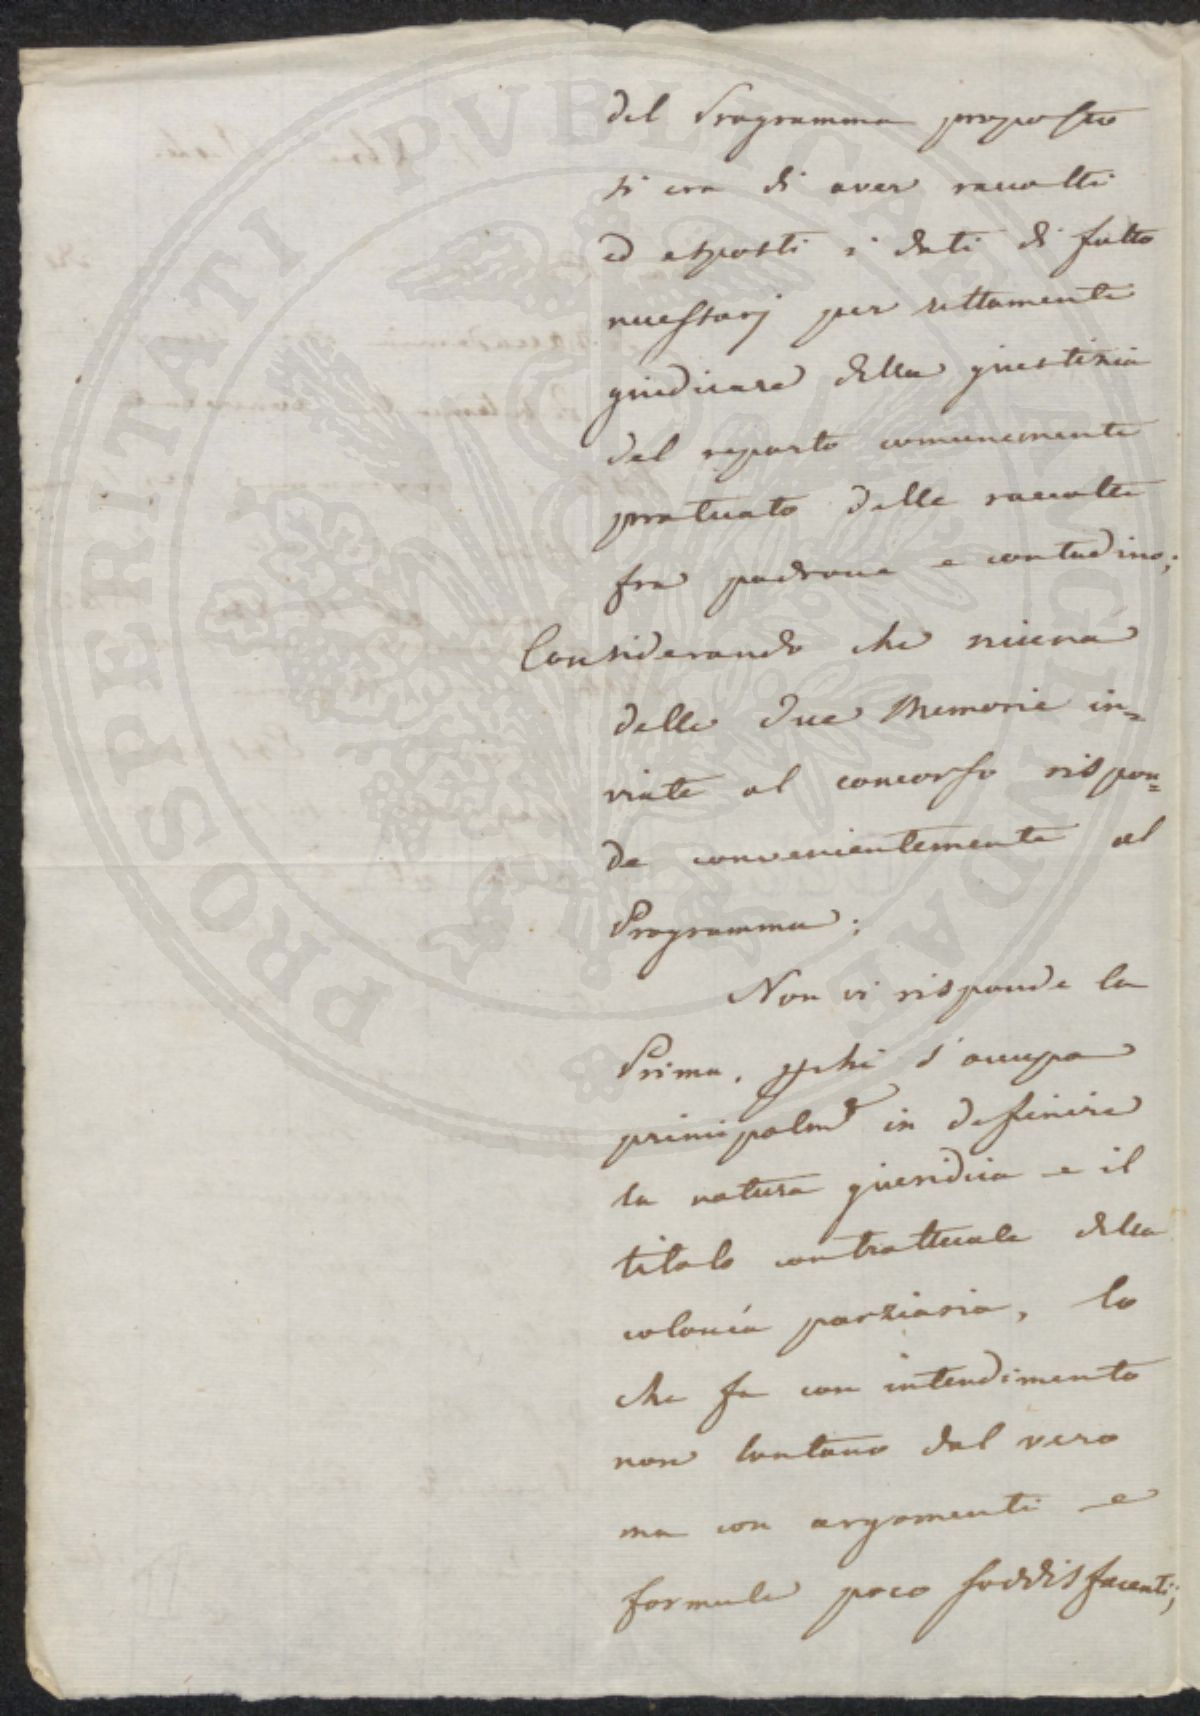 del Programma proposto
si era di aver raccolti
ed esposti i dati di fatto
necessarj per rettamente
giudicare della giustizia
del reparto comunemente
praticato delle raccolte
fra padrone e contadino;
Considerando che niuna
delle due Memorie in=
viate al concorso rispon=
de convenientemente al
Programma;
Non vi risponde la
Prima, s'occupa
principalmᵉ in definire
la natura giuridica e il
titolo contrattuale della
colonía parziaria, lo
che fa con intendimento
non lontano dal vero
ma con argomenti e
formule poco soddisfacenti;
PROSPERITATI PVBLICAE AVGENDAE